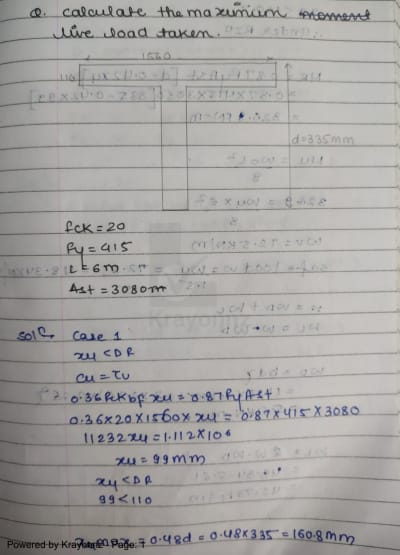 Q. calculate the maximum moment
live load taken.
1560
110
d=335mm
fck=20
Fy=415
L=6m
Ast=3080m
Soln. Case 1
xu<DR
Cu=Tu
0.36fckbf xu=0.87fyAst
0.36×20×1560×xu=0.87×415×3080
11232xu=1.112×10⁶
xu=99mm
xu<DR
99<110
=0.48d=0.48×335=160.8mm
Powered by Kray Page: 1